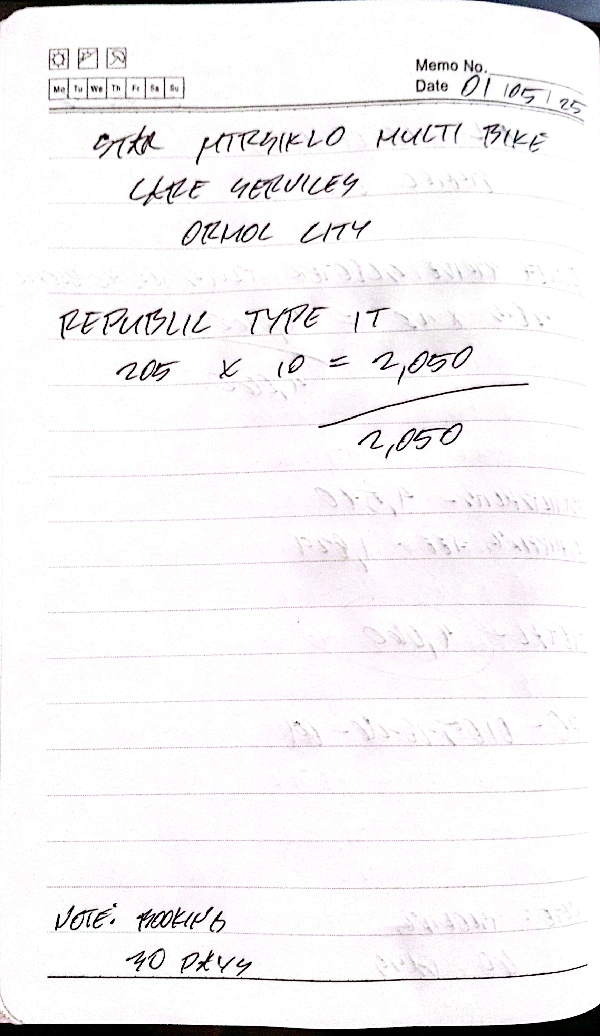 Memo No.
Date 01/05/25
Mo Tu We Th Fr Sa Su
STAR MTRSIKLO MULTI BIKE
CARE SERVICES
ORMOC CITY
REPUBLIC TYPE 1T
205 x 10 = 2,050
2,050
NOTE: BOOKING
30 DAYS